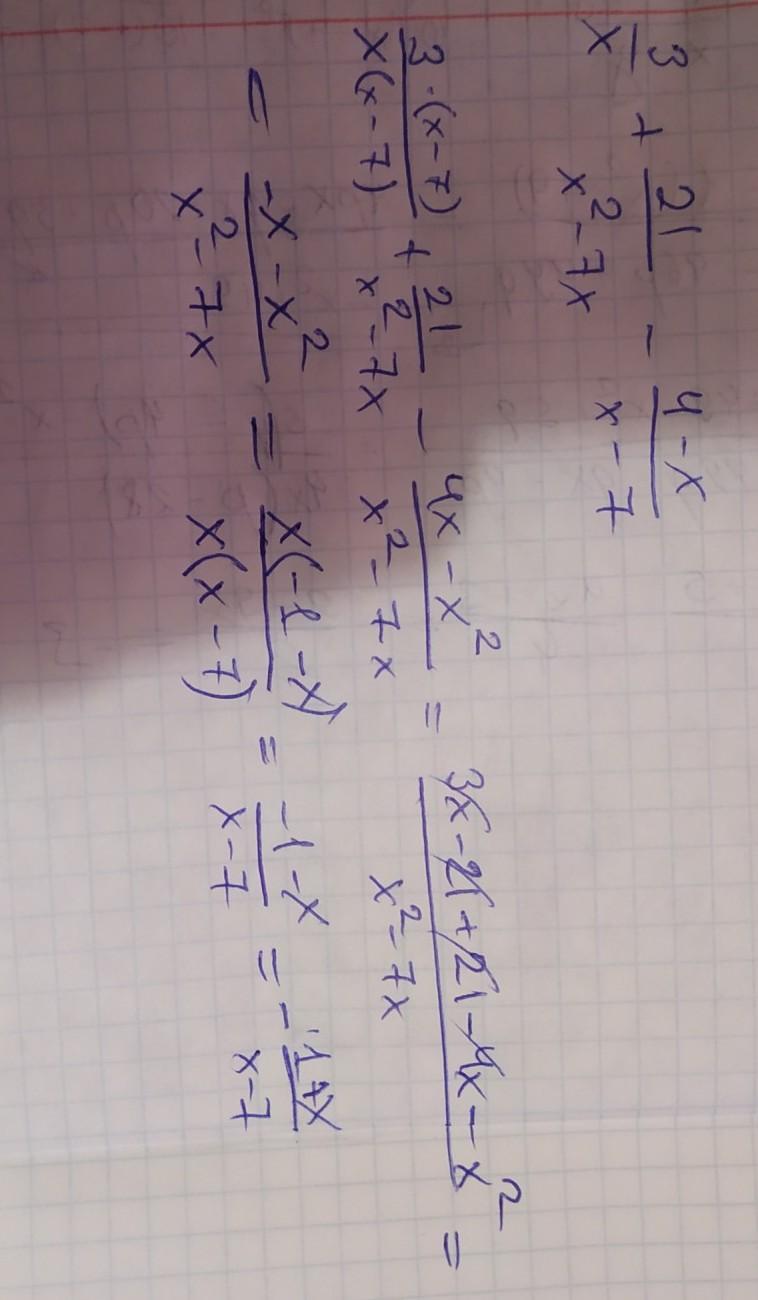 3/x + 21/(x² - 7x) - (4 - x)/(x - 7)
3·(x - 7)/(x(x - 7)) + 21/(x² - 7x) - (4x - x²)/(x² - 7x) = (3x - 21 + 21 - 4x - x²)/(x² - 7x) =
= (-x - x²)/(x² - 7x) = x(-1 - x)/(x(x - 7)) = (-1 - x)/(x - 7) = - (1 + x)/(x - 7)